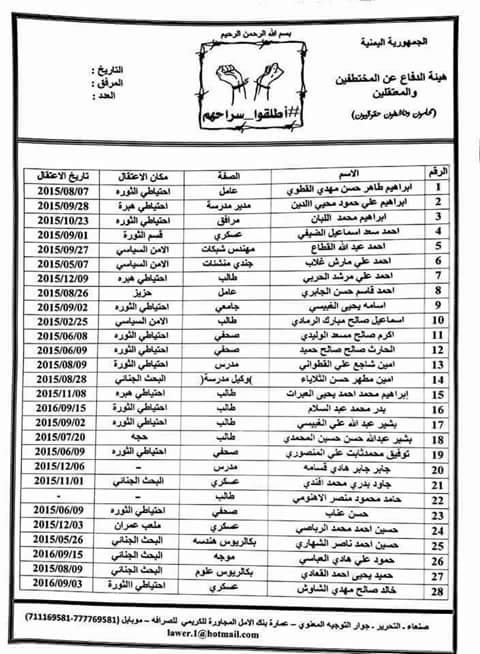 بسم الله الرحمن الرحيم
الجمهورية اليمنية
هيئة الدفاع عن المختطفين
والمعتقلين
(محامون وناشطون حقوقيون)
التاريخ :
المرفق :
العدد :
#أطلقوا_سراحهم
الرقم الاسم الصفة مكان الاعتقال تاريخ الاعتقال
1 ابراهيم طاهر حسن مهدي القطوي عامل احتياطي الثوره 2015/08/07
2 ابراهيم علي حمود محيي الدين مدير مدرسة احتياطي هبرة 2015/09/28
3 ابراهيم محمد اللبان مرافق احتياطي الثوره 2015/10/23
4 احمد سعد اسماعيل الضيفي عسكري قسم الثورة 2015/09/01
5 احمد عبد الله القطاع مهندس شبكات الامن السياسي 2015/09/27
6 احمد علي مارش غلاب جندي منشئات الامن السياسي 2015/05/07
7 احمد علي مرشد الحربي طالب احتياطي هبره 2015/12/09
8 احمد قاسم حسن الجابري عامل حزيز 2015/08/26
9 اسامه يحيى الغبيسي جامعي احتياطي الثوره 2015/09/02
10 اسماعيل صالح مبارك الرمادي طالب الامن السياسي 2015/02/25
11 اكرم صالح مسعد الوليدي صحفي احتياطي الثوره 2015/06/08
12 الحارث صالح صالح حميد صحفي احتياطي الثوره 2015/06/09
13 امين شناجع علي القطواني مدرس احتياطي الثورة 2015/08/09
14 امين مطهر حسن الثلاياء )وكيل مدرسة( البحث الجنائي 2015/08/28
15 إبراهيم محمد احمد يحيى العبرات طالب احتياطي هبره 2015/11/08
16 بدر محمد عبد السلام طالب احتياطي الثورة 2016/09/15
17 بشير عبد الله علي الغبيسي طالب احتياطي الثوره 2015/09/02
18 بشير عبدالله حسن حسين المحمدي طالب حجه 2015/07/20
19 توفيق محمدثابت علي المنصوري صحفي احتياطي الثوره 2015/06/09
20 جابر جابر هادي قسامه مدرس – 2015/12/06
21 جاود بدري محمد افندي عسكري البحث الجنائي 2015/11/01
22 حامد محمود منصر الاهنومي طالب - -
23 حسن عناب صحفي احتياطي الثوره 2015/06/09
24 حسين احمد محمد الرياصي عسكري ملعب عمران 2015/12/03
25 حسين احمد ناصر الشهاري بكالريوس هندسه البحث الجنائي 2015/05/26
26 حمود علي هادي العباسي موجه البحث الجنائي 2016/09/15
27 حميد يحيى احمد القعادي بكالريوس علوم البحث الجنائي 2015/08/09
28 خالد صالح مهدي الشاوش عسكري احتياطي الثورة 2016/09/03
صنعاء - التحرير - جوار التوجيه المعنوي - عمارة بنك الامل المجاورة للكريمي للصرافه - موبايل (777769581-711169581)
lawer.1@hotmail.com